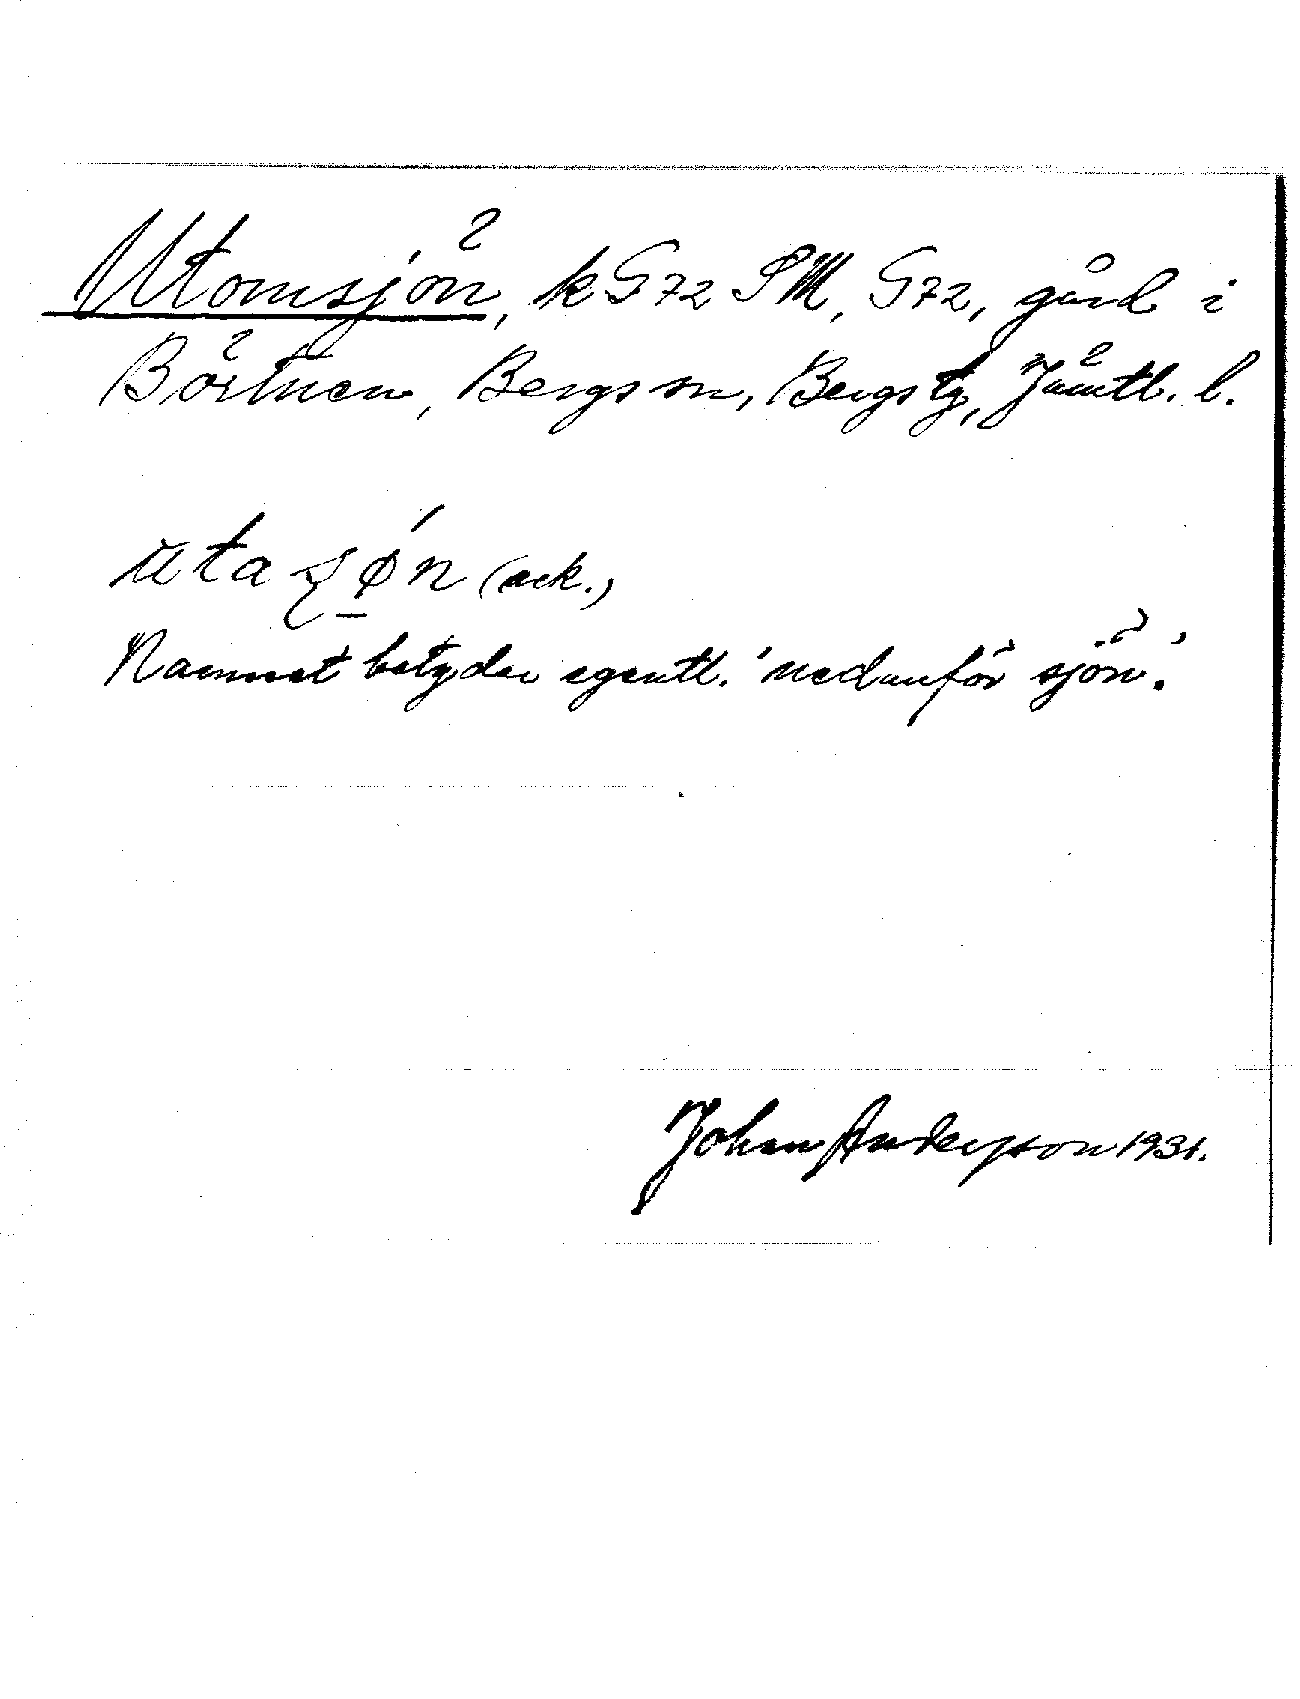 Utomsjön, k G72 SM, G72, gård i
Börtnen, Bergs sn, Bergs tg, Jämtl. l.
uta ʂǿn (ack.)
Namnet betyder egentl. 'nedanför sjön'.
Johan Andersson 1931.